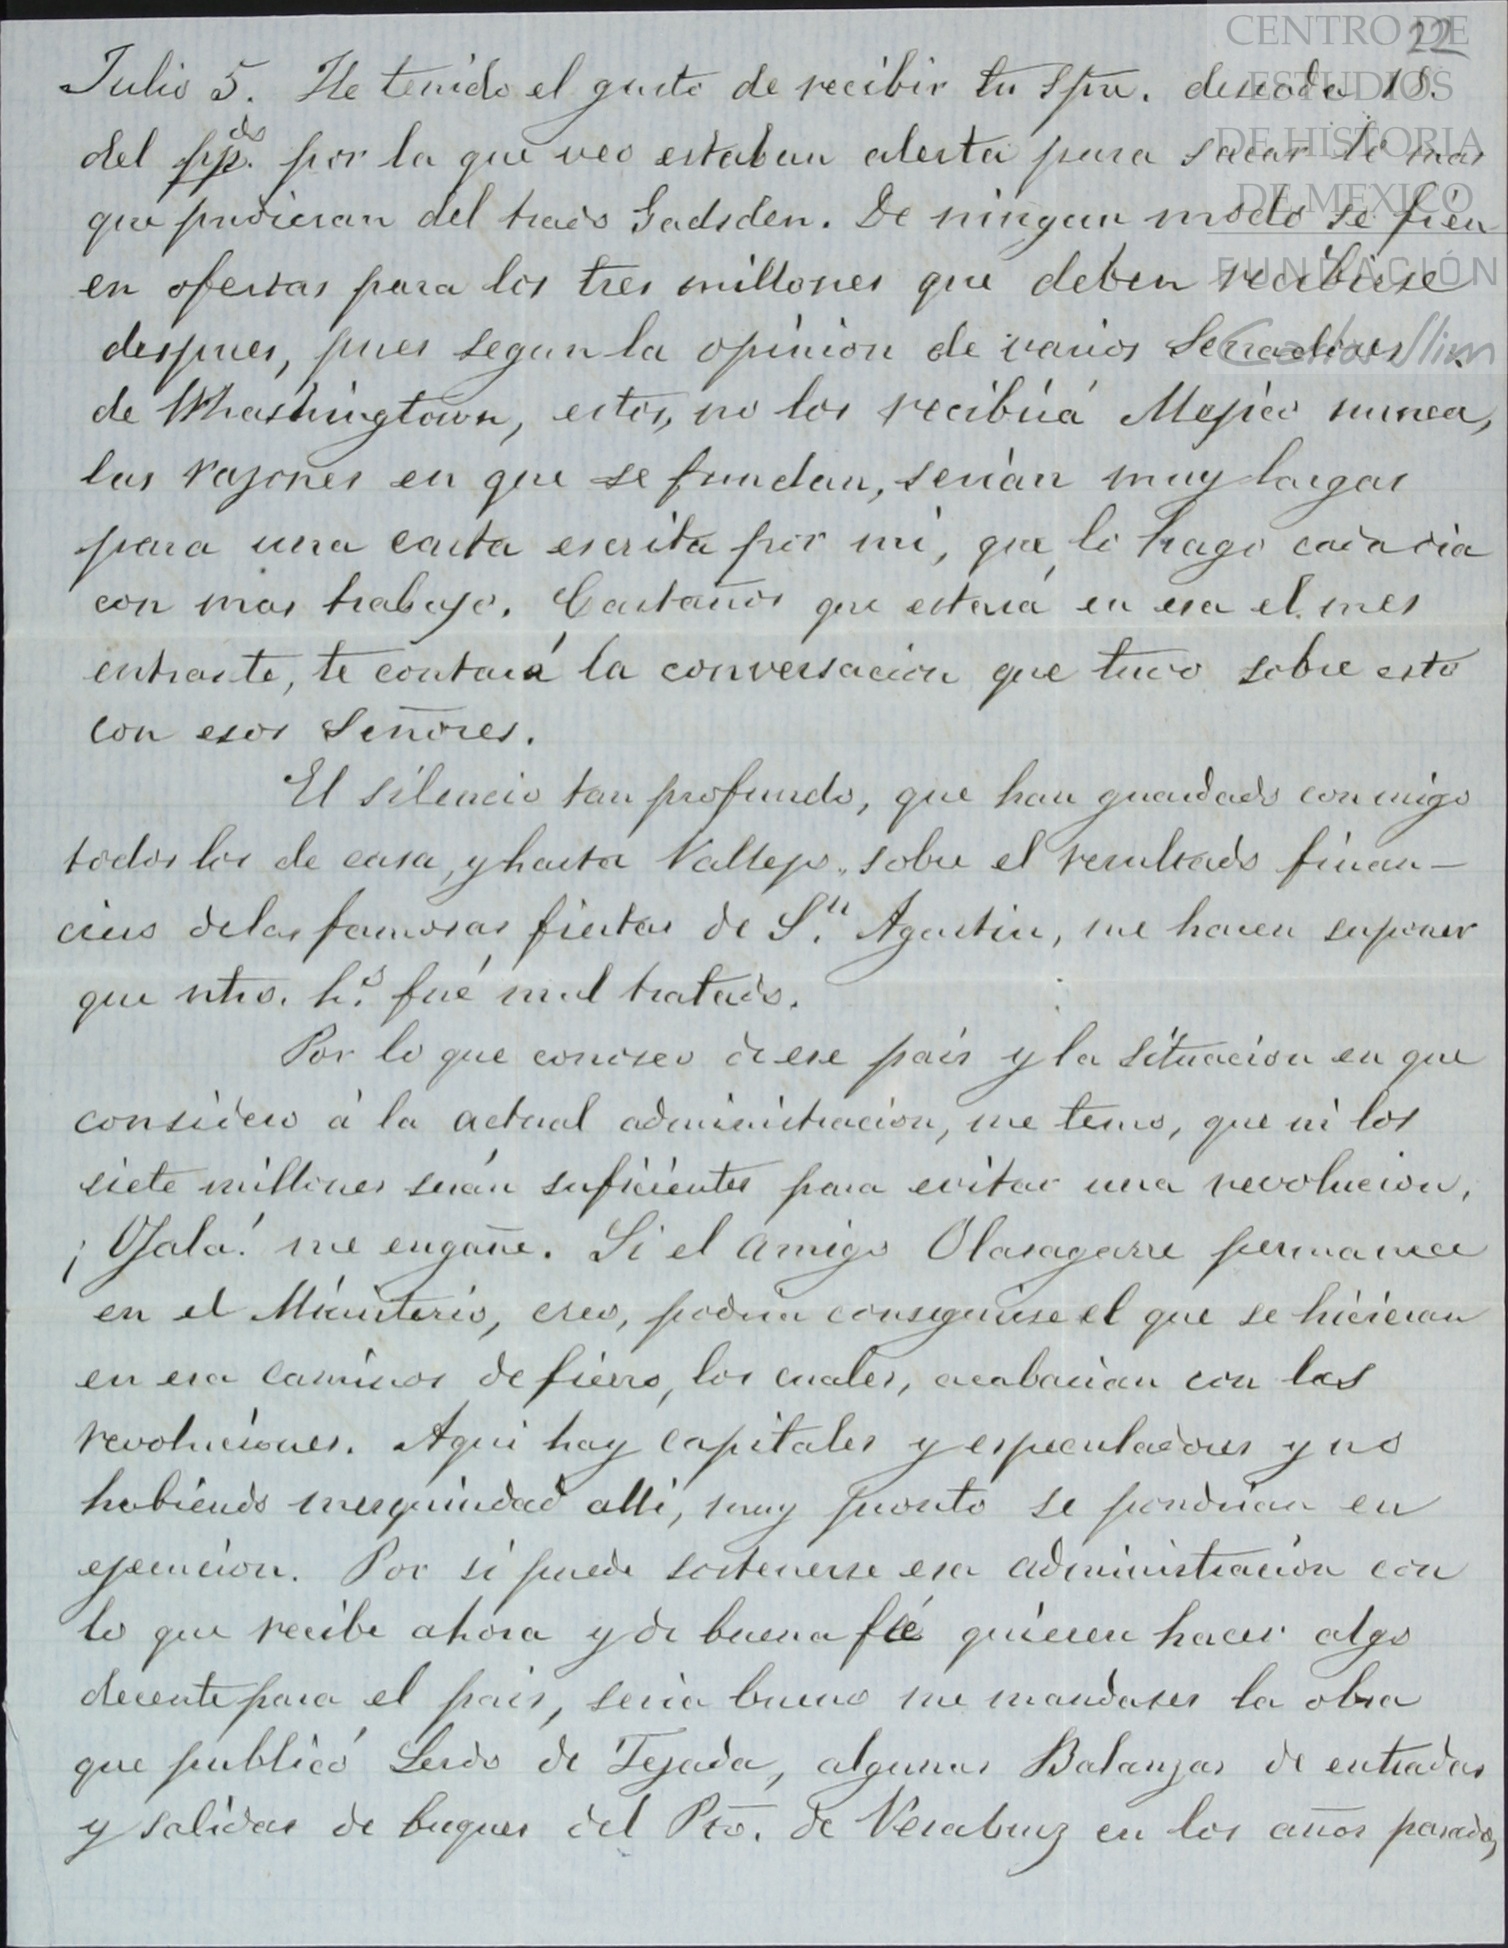 22
CENTRO DE
ESTUDIOS
DE HISTORIA
DE MEXICO
FUNDACIÓN
Carlos Slim
Julio 5. He tenido el gusto de recibir tu Spre. deseada 18.
del ppdo. por la que veo estaban alerta para sacar lo mas
que pudieran del trato Gadsden. De ningun modo se fien
en ofertas para los tres millones que deben recibirse
despues, pues segun la opinion de varios Senadores
de Whashingtown, estos, no los recibirá Mejico nunca,
las rasones en que se fundan, serian muy largas
para una carta escrita por mi, que lo hago cada dia
con mas trabajo. Castaños que estará en esa el mes
entrante, te contará la conversacion que tuvo sobre esto
con esos Señores.
El silencio tan profundo, que han guardado conmigo
todos los de casa, y hasta Vallejo, sobre el resultado finan-
ciero de las famosas fiestas de Sn. Agustin, me hacen suponer
que ntro. ho. fué mal tratado.
Por lo que conosco de ese pais y la situacion en que
considero á la actual administracion, me temo, que ni los
siete millones serán suficientes para evitar una revolucion,
¡Ojalá! me engañe. Si el amigo Olasagarre permanece
en el Ministerio, creo, podria conseguirse el que se hicieran
en esa caminos de fierro, los cuales, acabarian con las
revoluciones. Aqui hay capitales y especuladores y no
habiendo mesquindad alli, muy pronto se pondrian en
ejecucion. Por si puede sostenerse esa administracion con
lo que recibe ahora y de buena fé quieren hacer algo
decente para el pais, seria bueno me mandases la obra
que publicó Lerdo de Tejada, algunas Balanzas de entradas
y salidas de buques del Pto. de Verabruz en los años pasados,